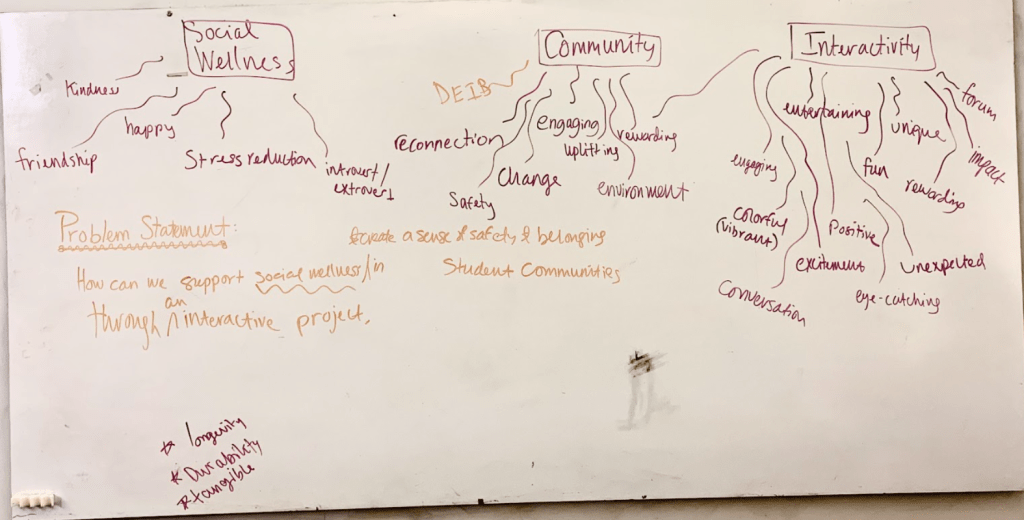 Social
Wellness
Kindness
friendship
happy
Stress reduction
introvert/
extrovert
Community
DEIB
reconnection
Safety
Change
engaging
uplifting
rewarding
environment
Interactivity
engaging
colorful
(vibrant)
conversation
entertaining
excitment
Positive
fun
eye-catching
unique
unexpected
rewarding
impact
forum
Problem Statement:
How can we support social wellness/in
through an interactive project,
&create a sense of safety & belonging
Student Communities
* longevity
* Durability
* tangible